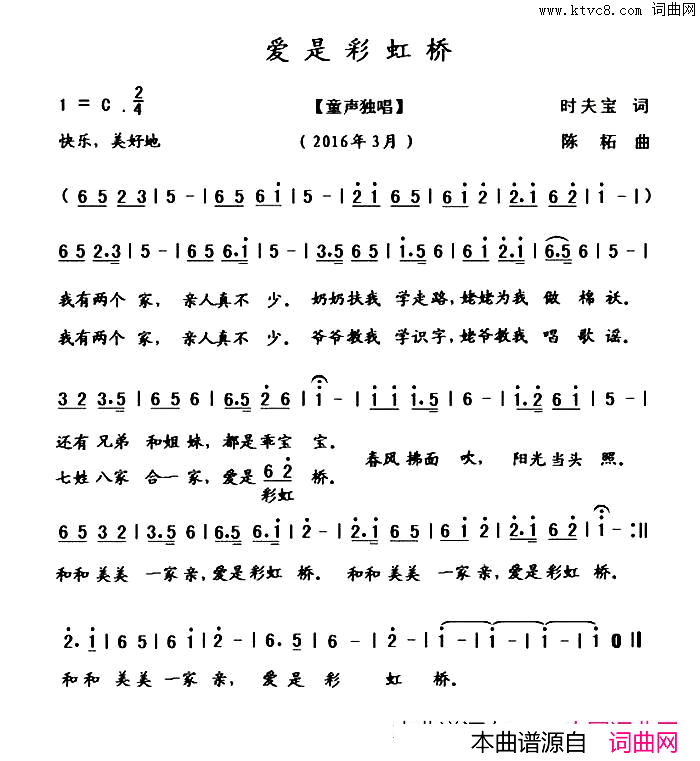 www.ktvc8.com 词曲网
爱是彩虹桥
1 = C . 2/4 【童声独唱】 时夫宝 词
快乐，美好地 （2016年3月） 陈 柘 曲
（6 5 2 3 | 5 - | 6 5 6 i | 5 - | 2̇ i 6 5 | 6 i 2̇ | 2̇. i 6 2̇ | i - | ）
6 5 2.3 | 5 - | 6 5 6.i | 5 - | 3.5 6 5 | i.5 6 | 6 i 2̇.i | 6.5 6 | 5 - |
我有两个 家， 亲人真不 少。 奶奶扶我 学走路，姥姥为我 做 棉 袄。
我有两个 家， 亲人真不 少。 爷爷教我 学识字，姥爷教我 唱 歌 谣。
3 2 3.5 | 6 5 6 | 6.5 2̇ 6 | i - | i i i.5 | 6 - | i.2̇ 6 i | 5 - |
还有 兄弟 和姐 妹，都是乖宝 宝。
春风拂面 吹， 阳光当头 照。
七姓八家 合一 家，爱是 6 2̇ 桥。
彩虹
6 5 3 2 | 3.5 6 | 6.5 6.i | 2̇ - | 2̇.i 6 5 | 6 i 2̇ | 2̇.i 6 2̇ | i - :||
和和美美 一家 亲，爱是彩虹 桥。 和和美美 一家 亲，爱是彩虹 桥。
2̇. i | 6 5 | 6 i | 2̇ - | 6. 5 | 6 - | 2̇ - | i - | i - | i - | i 0 ||
和 和 美 美 一 家 亲， 爱 是 彩 虹 桥。
本曲谱源自 词曲网